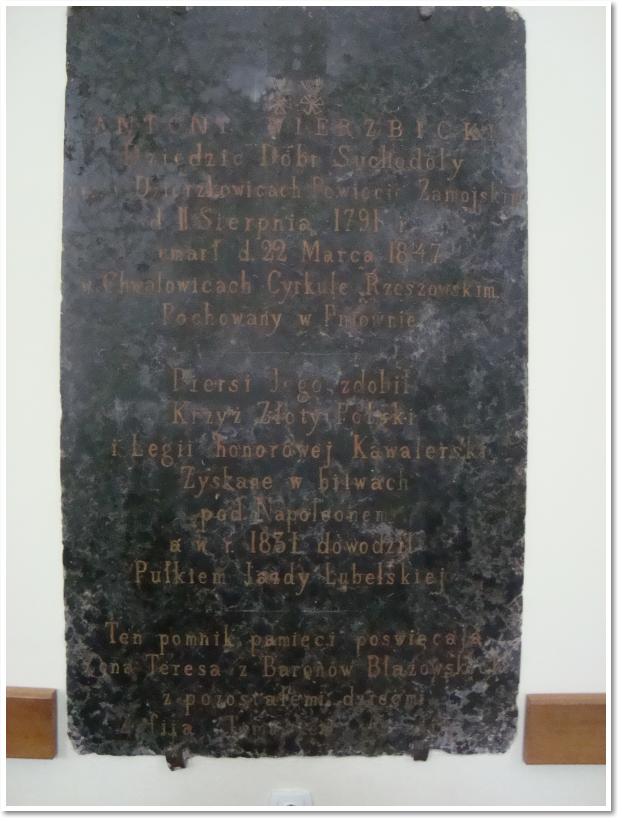 ANTONI WIERZBICKI
Dziedzic Dóbr Suchodoły
w Dzierzkowicach Powiecie Zamojskim
d. 11 Sierpnia 1791 r.
umarł d. 22 Marca 1847
w Chwałowicach Cyrkule Rzeszowskim
Pochowany w Pniownie
Piersi Jego zdobił
Krzyż Złoty Polski
i Legii honorowej Kawalerski
Zyskane w bitwach
pod Napoleonem
a w r. 1831 dowodził
Pułkiem Jazdy Lubelskiej
Ten pomnik pamięci poświęcają
Żona Teresa z Baronów
z pozostałemi dziećmi
Zofija